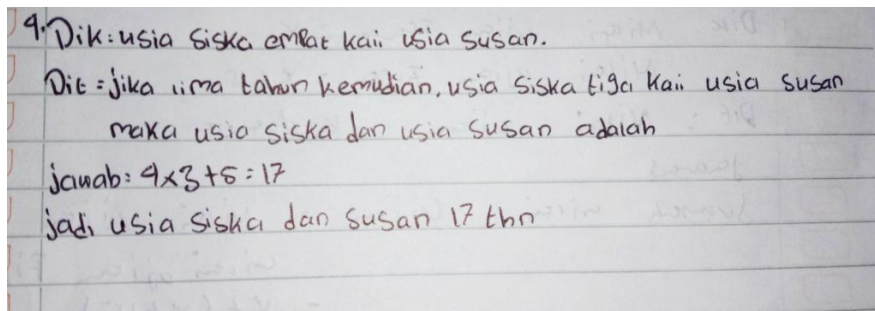 9. Dik: usia Siska empat kali usia Susan.
Dit = jika lima tahun kemudian, usia Siska tiga kali usia Susan
maka usia Siska dan usia Susan adalah
jawab: 4x3+5=17
jadi usia Siska dan Susan 17 thn